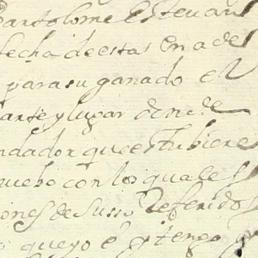 Bartolome Esteuan
fecha de estas en a de
para su ganado el
parte y lugar donde
ndador que estubiere
nuebo con los quales
iones de Susso Referidos
que yo e y tengo